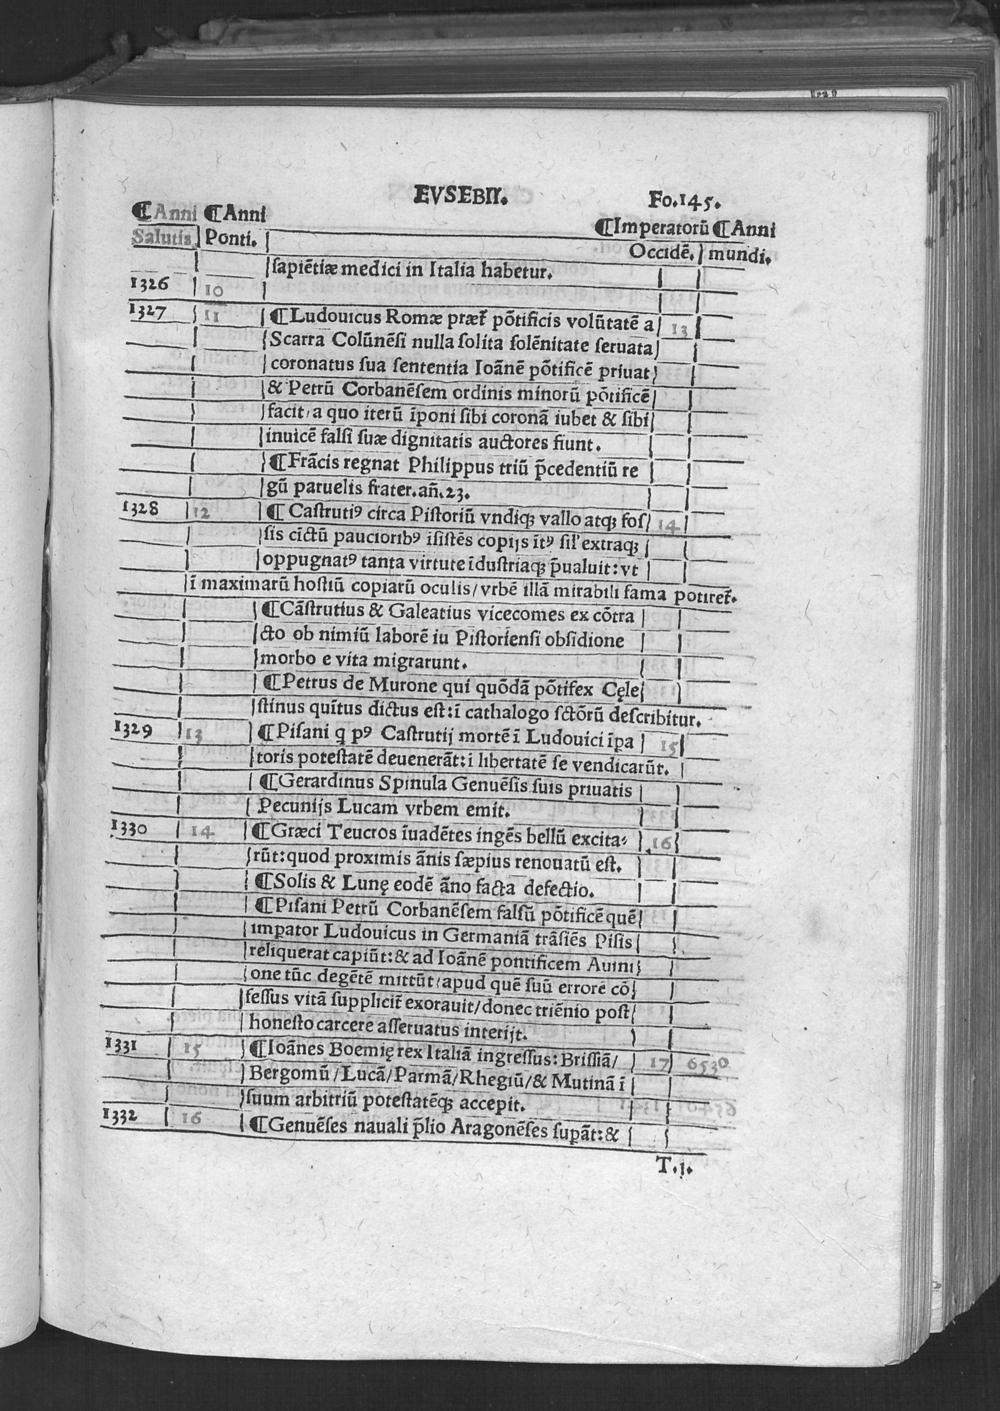 EVSEBII. Fo.145.
¶Anni ¶Anni ¶Imperatorū ¶Anni
Salutis Ponti. Occidē. mundi.
sapiētiæ medici in Italia habetur.
1326 10
1327 11 ¶Ludouicus Romæ præt̄ pōtificis volūtatē a 13
Scarra Colūnēsi nulla solita solēnitate seruata
coronatus sua sententia Ioānē pōtificē priuat
& Petrū Corbanēsem ordinis minorū pōtificē
facit/a quo iterū īponi sibi coronā iubet & sibi
inuicē falsi suæ dignitatis auctores fiunt.
¶Frācis regnat Philippus triū p̄cedentiū re
gū paruelis frater.añ.23.
1328 12 ¶Castrutiꝰ circa Pistoriū vndiqꝫ vallo atqꝫ fos 14
sis cīctū paucioribꝰ īsistēs copijs ītꝰ sil' extraqꝫ
oppugnatꝰ tanta virtute īdustriaqꝫ p̄ualuit:vt
ī maximarū hostiū copiarū oculis/vrbē illā mirabili fama potiret̄.
¶Cāstrutius & Galeatius vicecomes ex cōtra
cto ob nimiū laborē iu Pistoriensi obsidione
morbo e vita migrarunt.
¶Petrus de Murone qui quōdā pōtifex Cęle
stinus quītus dictus est:ī cathalogo sctōrū describitur.
1329 13 ¶Pisani q pꝰ Castrutij mortē ī Ludouici īpa 15
toris potestatē deuenerāt:ī libertatē se vendicarūt.
¶Gerardinus Spinula Genuēsis suis priuatis
Pecunijs Lucam vrbem emit.
1330 14 ¶Græci Teucros īuadētes ingēs bellū excita- 16
rūt:quod proximis ānis sæpius renouatū est.
¶Solis & Lunę eodē āno facta defectio.
¶Pisani Petrū Corbanēsem falsū pōtificē quē
impator Ludouicus in Germaniā trāsiēs Pisis
reliquerat capiūt:& ad Ioānē pontificem Auini
one tūc degētē mittūt/apud quē suū errorē cō
fessus vitā supplicit̄ exorauit/donec triēnio post
honesto carcere asseruatus interijt.
1331 15 ¶Ioānes Boemię rex Italiā ingressus:Brissiā/ 17 6530
Bergomū/Lucā/Parmā/Rhegiū/& Mutinā ī
suum arbitriū potestatēqꝫ accepit.
1332 16 ¶Genuēses nauali p̄lio Aragonēses supāt:&
T.j.